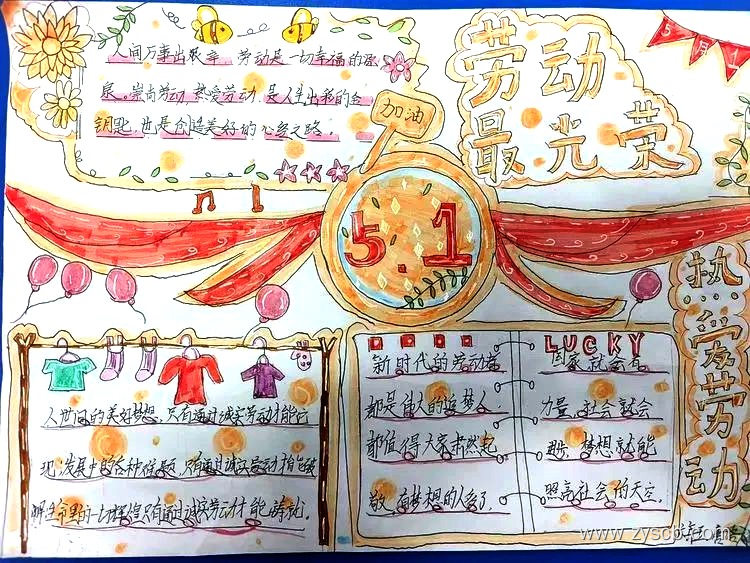 人间万事出艰辛，劳动是一切幸福的源
泉。崇尚劳动、热爱劳动，是人生出彩的金
钥匙，也是创造美好的必经之路。
加油
劳动
最光荣
5月1
5.1
热爱劳动
人世间的美好梦想，只有通过诚实劳动才能实
现；发展中的各种难题，只有通过诚实劳动才能破
解；生命里的一切辉煌，只有通过诚实劳动才能铸就。
新时代的劳动者
都是伟大的追梦人，
都值得大家肃然起
敬。有梦想的人多了，
LUCKY
国家就会有
力量，社会就会
进步，梦想就能
照亮社会的天空。
www.zyscb.com